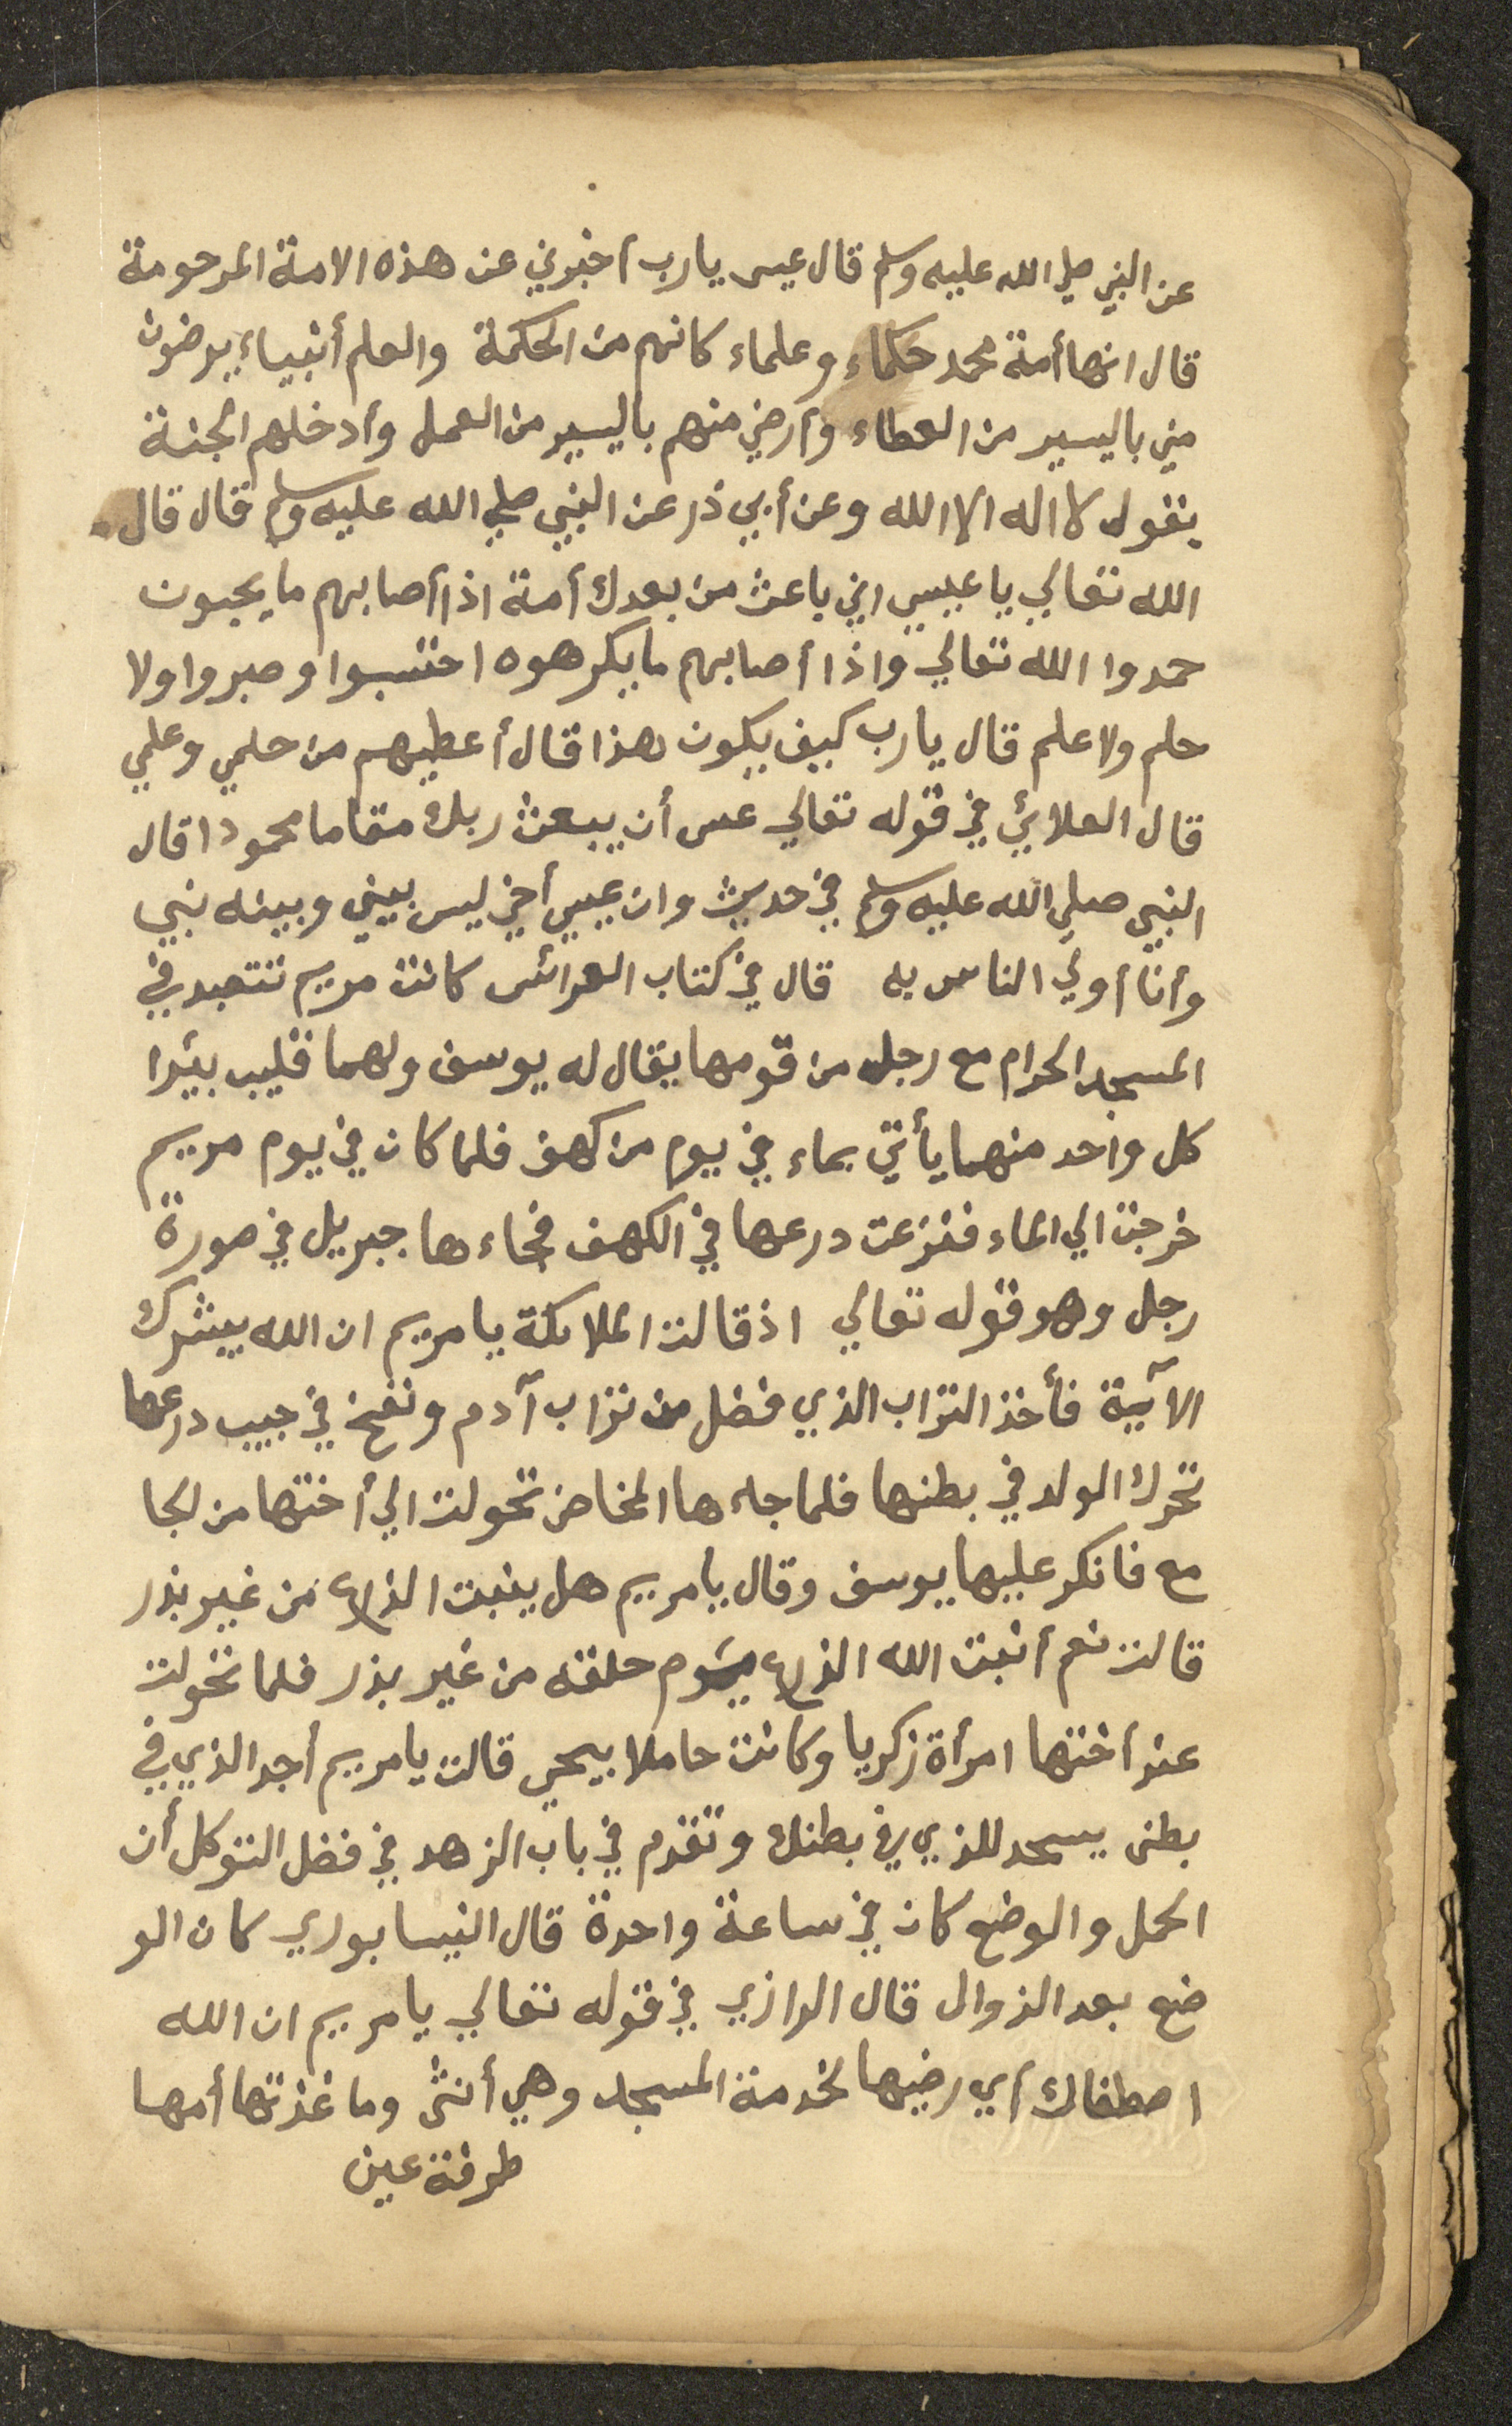 عن النبي صلي الله عليه وسلم قال عيسى يا رب أخبرني عن هذه الامة المرحومة
قال انها أمة محمد حكماء وعلماء كانهم من الحكمة والعلم أنبياء يرضون
مني باليسير من العطاء وأرضي منهم باليسير من العمل وأدخلهم الجنة
بقول لا اله الا الله وعن أبي ذر عن النبي صلي الله عليه وسلم قال قال
الله تعالي يا عيسي اني باعث من بعدك أمة اذا أصابهم ما يحبون
حمدوا الله تعالي واذا أصابهم ما يكرهوه احتسبوا وصبروا ولا
حلم ولا علم قال يا رب كيف يكون هذا قال أعطيهم من حلمي وعلمي
قال العلائي في قوله تعالي عسى أن يبعث ربك مقاما محمودا قال
النبي صلي الله عليه وسلم في حديث وان عيسي أخي ليس بيني وبينه نبي
وأنا أولي الناس به قال في كتاب العرائس كانت مريم تتعبد في
المسجد الحرام مع رجل من قومها يقال له يوسف ولهما قليب بيرا
كل واحد منهما يأتي بماء في يوم من كهف فلما كان في يوم مريم
خرجت الي الماء فنزعت درعها في الكهف فجاءها جبريل في صورة
رجل وهو قوله تعالي اذ قالت الملائكة يا مريم ان الله يبشرك
الآية فأخذ التراب الذي فضل من تراب آدم ونفخ في جيب درعها
تحرك الولد في بطنها فلما جاءها المخاض تحولت الي أختها من الجا
مع فانكر عليها يوسف وقال يا مريم هل ينبت الزرع من غير بذر
قالت نعم أنبت الله الزرع يوم خلقه من غير بذر فلما تحولت
عند أختها امرأة زكريا وكانت حاملا بيحي قالت يا مريم أجد الذي في
بطني يسجد للذي في بطنك وتقدم في باب الزهد في فضل التوكل أن
الحمل والوضع كان في ساعة واحدة قال النيسابوري كان الو
ضع بعد الزوال قال الرازي في قوله تعالي يا مريم ان الله
اصطفاك أي رضيها لخدمة المسجد وهي أنثى وما غذتها أمها
طرفة عين